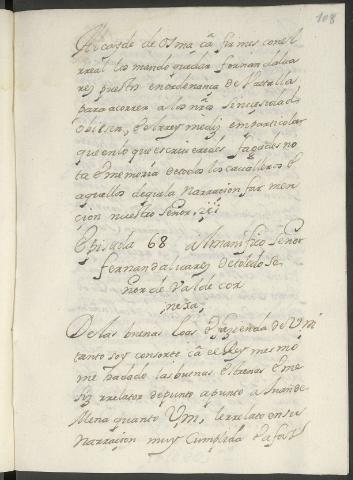 108
Alcayde de Osma ca firmes con el
rreal los mandó quedar Fernandalva
rez puestos en ordenanca de Vatalla
para acorrer a los nros si necesidad
obiesen, E el rrey me dijo em particolar
que en lo que escriuieredes fagades no
ta E memoria de todos los cavalleros E
aquellos de que la Narracion far men
çion nuestro Señor, etc
Episcola 68 al Manifico Señor
Fernand alvarez de toledo Se
ñor de Valdecor
neza,
De las buenas loas E fazienda de Vm
tanto soy consorte ca el Rey mesmo
me ha dado las buenas E me
rrelator de punto a punto a Juan de
Mena quanto Vm, le rrelato en su
Narracion muy Cumplida E a fas